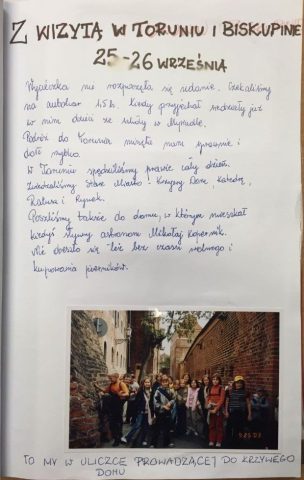 Z WIZYTĄ W TORUNIU I BISKUPINIE
25-26 WRZEŚNIA
Wycieczka nie rozpoczęła się udanie. Czekaliśmy
na autokar 1,5 h. Kiedy przyjechał siedziały już
w nim dzieci ze szkoły w
Podróż do Torunia minęła nam sprawnie i
dość szybko.
W Toruniu spędziliśmy prawie cały dzień.
Zwiedziliśmy Stare Miasto: Krzywy Dom, Katedrę,
Ratusz i Rynek.
Poszliśmy także do domu, w którym mieszkał
kiedyś słynny astronom Mikołaj Kopernik.
Nie obeszło się też bez czasu wolnego i
kupowania pierników.
TO MY W ULICZCE PROWADZĄCEJ DO KRZYWEGO
DOMU